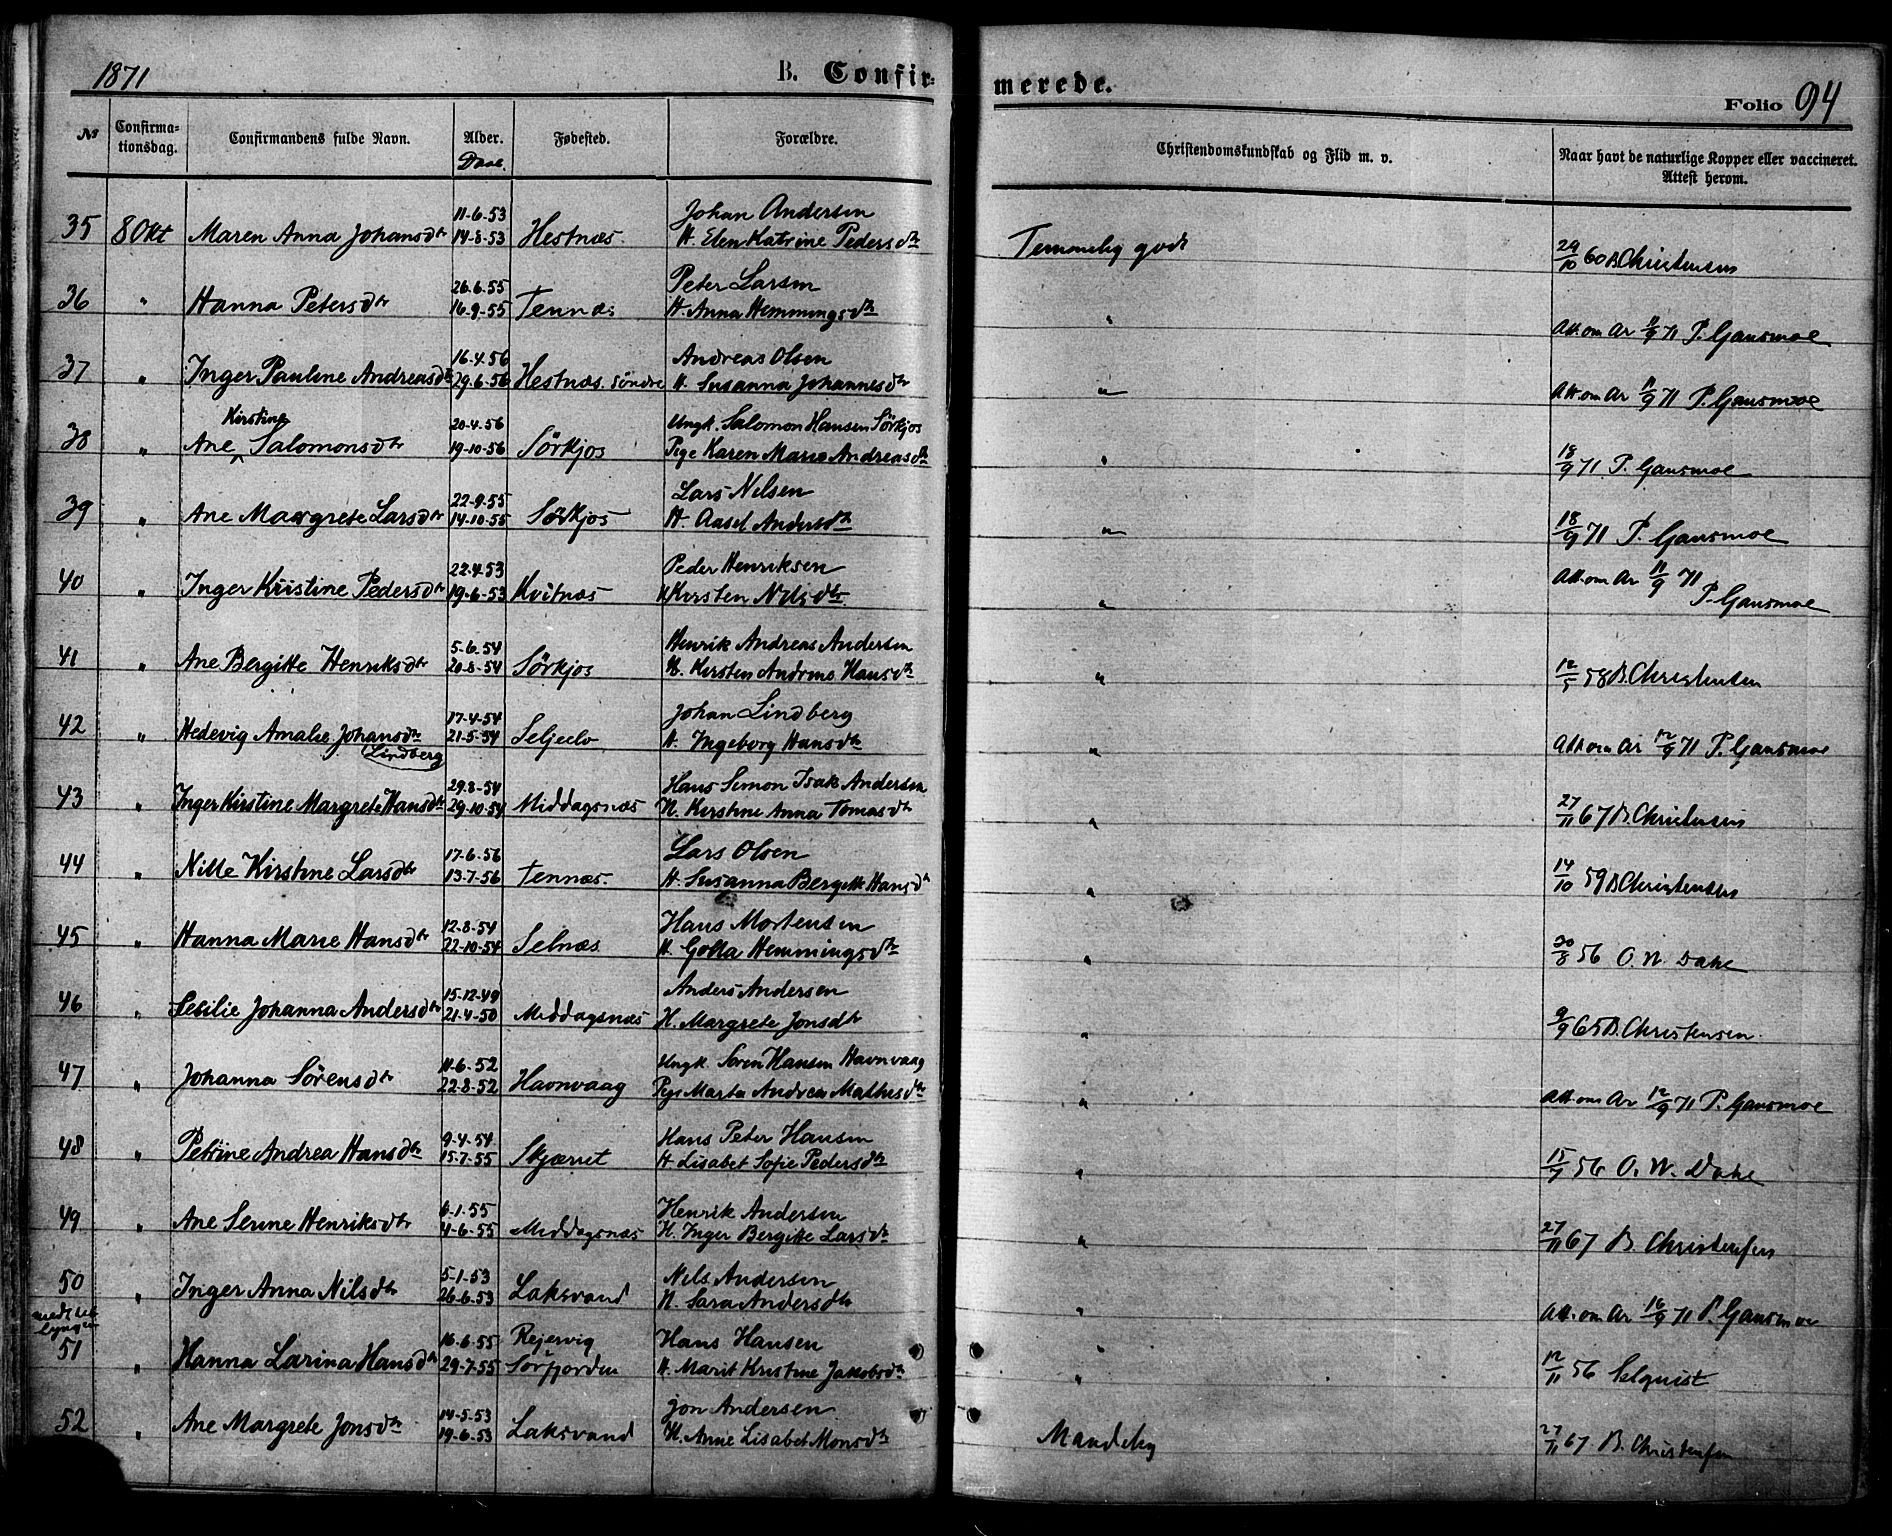 1871 B. Confir= merede. Folio 94
No Confirma-tionsdag. Confirmandens fulde Navn. Alder. Daab. Fødested. Forældre. Christendomskundskab og Flid m. v. Naar havt de naturlige Kopper eller vaccineret. Attest herom.
11-6-53 Johan Andersen
35 8 Okt Maren Anna Johansdtr 14-8-53 Hestnæs. H. Elen Katrine Pedersdtr Temmelig godt 29/10 60 B. Christensen
26-6-55 Peter Larsen
36 " Hanna Petersdtr 16-9-55 Tennæs H. Anna Hemmingsdtr " Att. om Ar 11/9 71 P. Gansmoe
16-4-56 Andreas Olsen
37 " Inger Pauline Andreasdtr 29-6-56 Hestnæs. søndre H. Susanna Johannesdtr " Att om Ar 11/9 71 P. Gansmoe
Kirstine 20-4-56 Ungk. Salomon Hansen Sörkjos
38 " Ane Salomonsdtr 19-10-56 Sörkjos Pige Karen Marie Andreasdtr " 18/9 71 P. Gansmoe
22-9-55 Lars Nilsen
39 " Ane Margrete Larsdtr 14-10-55 Sörkjos H. Aasel Andersdtr " 18/9 71 P. Gansmoe
22-4-53 Peder Henriksen
40 " Inger Kristine Pedersdtr 19-6-53 Kvitnæs H Kirsten Nilsdtr " Att. om Ar 11/9 71 P. Gansmoe
5-6-54 Henrik Andreas Andersen
41 " Ane Bergitte Henriksdtr 20-8-54 Sörkjos H. Kirsten Andrine Hansdtr " 12/5 58 B. Christensen
17-4-54 Johan Lindberg
42 " Hedevig Amalie Johansdtr 21-5-54 Seljeelv H. Ingeborg Hansdtr " Att om Ar 12/9 71 P. Gansmoe
Lindberg
29-8-54 Hans Simon Isak Andersen
43 " Inger Kirstine Margrete Hansdtr 29-10-54 Middagsnæs H. Kirstine Anna Tomasdtr " 27/11 67 B. Christensen
17-6-56 Lars Olsen
44 " Nille Kirstine Larsdtr 13-7-56 Tennæs. H. Susanna Bergitte Hansdtr " 14/10 59 B Christensen
12-8-54 Hans Mortensen
45 " Hanna Marie Hansdtr 22-10-54 Selnæs H. Golla Hemmingsdtr " 30/8 56 O. W. Dahl
15-12-49 Anders Andersen
46 " Sesilie Johanna Andersdtr 21-4-50 Middagsnæs H. Margrete Jonsdtr " 9/9 65 B. Christensen.
11-6-52 Ungk. Sören Hansen Havnvaag
47 " Johanna Sörensdtr 22-8-52 Havnvaag Pige Marta Andrea Mathisdtr " Att. om Ar 12/9 71 P. Gansmoe
9-4-54 Hans Peter Hansen
48 " Petrine Andrea Hansdtr 15-7-55 Skjæret H Lisabet Sofie Pedersdtr " 15/7 56 O. W. Dahl
6-1-55 Henrik Andersen
49 " Ane Serine Henriksdtr 4-6-55 Middagsnæs H. Inger Bergitte Larsdtr " 27/11 67 B. Christensen
5-1-53 Nels Andersen
50 " Inger Anna Nilsdtr 26-6-53 Laksvand H. Sara Andersdtr " Att. om Ar 16/9 71 P. Gansmoe
16-6-55 Rejervig Hans Hansen "
51 " Hanna Larina Hansdtr 29-7-55 Sörfjorden H. Marit Kristine Jakobsdtr " 12/11 56 Selquist
14-5-53 Jon Andersen
52 " Ane Margrete Jonsdtr 19-6-53 Laksvand H. Anne Lisabet Monsdtr Maadelig 27/11 67 B. Christensen